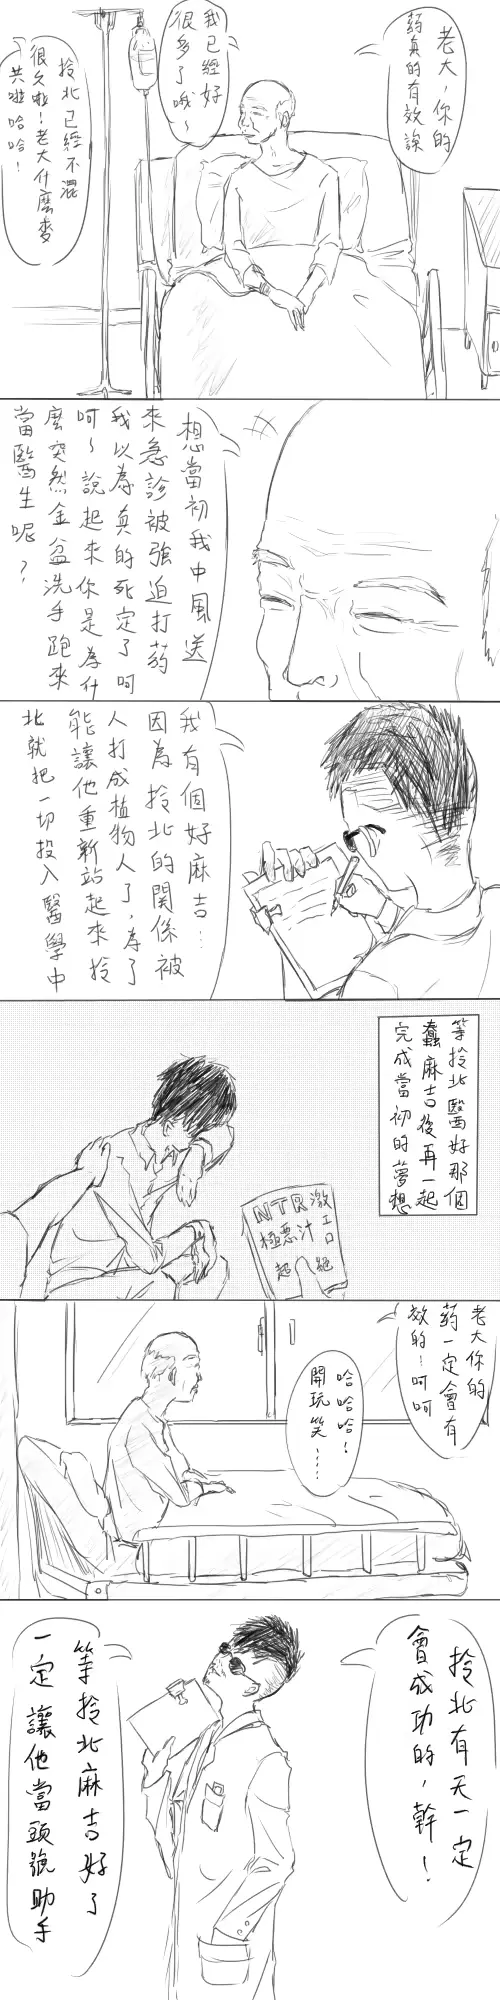 老大,你的
葯真的有效誒
我已經好
很多了哦~
拎北已經不混
很久啦!老大什麼麥
共啦哈哈!
想當初我中風送
來急診被強迫打葯
我以為真的死定了呵
呵~說起來你是為什
麼突然金盆洗手跑來
當醫生呢?
我有個好麻吉…
因為拎北的關係被
人打成植物人了,為了
能讓他重新站起來拎
北就把一切投入醫學中
等拎北醫好那個
蠢麻吉後再一起
完成當初的夢想
NTR激
極惡汁工口
起
老大你的
葯一定會有
效的!呵呵
哈哈哈!
開玩笑……
拎北有天一定
會成功的,幹!
等拎北麻吉好了
一定讓他當頭號助手